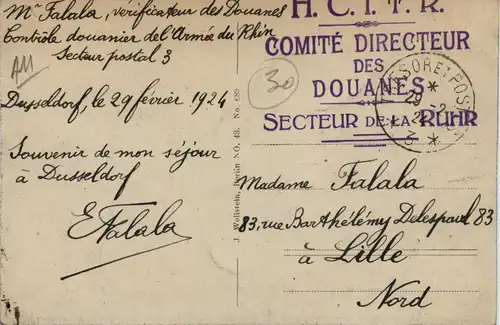 Mr Falala, vérificateur des Douanes
Contrôle douanier de l'Armée du Rhin
Secteur postal 3
AM
Dusseldorf, le 29 février 1924
Souvenir de mon séjour
à Dusseldorf
E Falala
J. Wollstein, Berlin NO. 43. No. 489
H. C. I. T. R.
COMITÉ DIRECTEUR
DES
DOUANES
SECTEUR DE LA RUHR
30
TRESOR ET POSTES
29-2
24
* 3 *
Madame Falala
83, rue Barthélémy Delespaul 83
à Lille
Nord